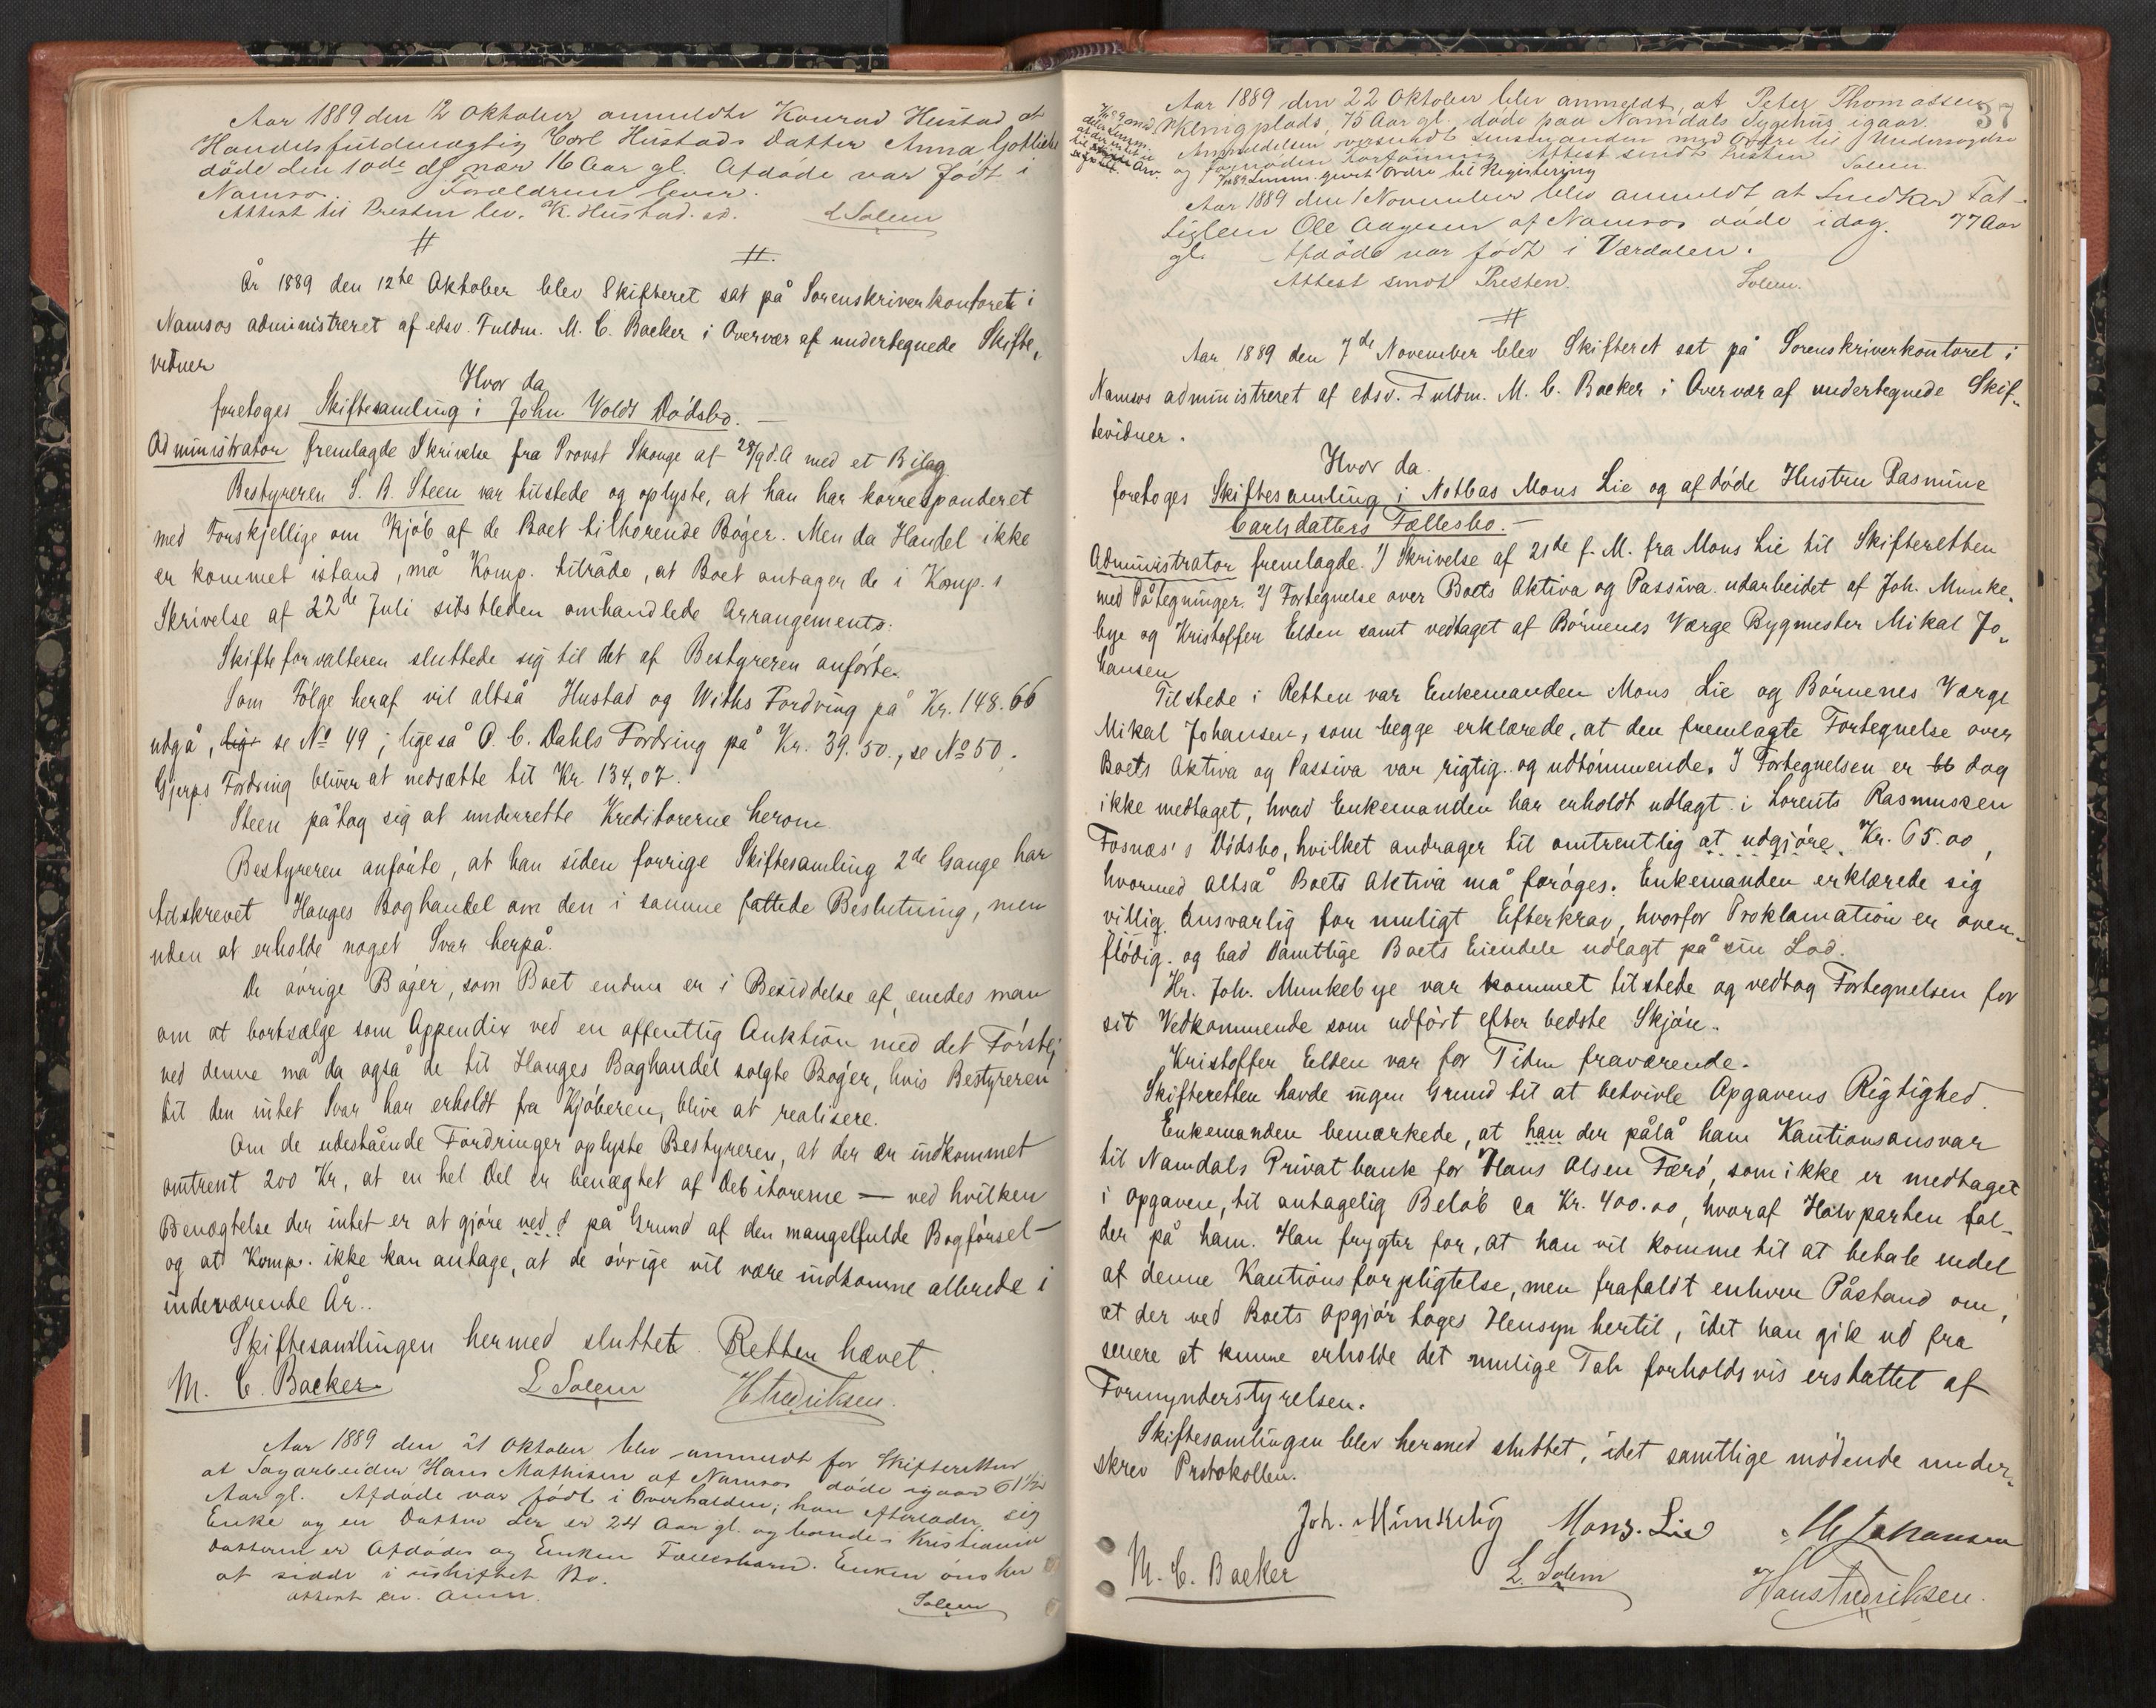 Aar 1889 den 12 Oktober anmeldte Konrad Hustad at
Handelsfuldmægtig Carl Hustads Datter Anna Gotliebe
døde den 10de ds nær 16 Aar gl. Afdøde var født i
Namsos. Forældrene lever.
Attest til Presten lev. K. Hustad. sd. L Solem
#
#.
År 1889 den 12te Oktober blev Skifteret sat på Sorenskriverkontoret i
Namsos administreret af edsv. Fuldm. M. C. Backer i Overvær af undertegnede Skifte„
vidner
Hvor da
foretoges Skiftesamling i John Volds Dødsbo. —
Administrator fremlagde Skrivelse fra Provst Skouge af 28/9 d.A med et Bilag
Bestyreren S. B. Steen var tilstede og oplyste, at han har korresponderet
med Forskjellige om Kjøb af de Boet tilhørende Bøger. Men da Handel ikke
er kommet istand, må Komp. tilråde, at Boet antager de i Komp. s
Skrivelse af 22de Juli sidstleden omhandlede Arrangements.
Skifteforvalteren sluttede sig til det af Bestyreren anførte.
Som Følge heraf vil altså Hustad og Withs Fordring på Kr. 148.66
udgå, lig se No 49; ligeså O. C. Dahls Fordring på Kr. 39.50., se No 50.
Gjerps Fordring bliver at nedsætte til Kr 134,07.
Steen påtog sig at underrette Kreditorerne herom
Bestyreren anførte, at han siden forrige Skiftesamling 2de Gange har
tilskrevet Hauges Boghandel om den i samme fattede Beslutning, men
uden at erholde noget Svar herpå.
De øvrige Bøger, som Boet endnu er i Besiddelse af, enedes man
om at bortsælge som Appendix ved en offentlig Auktion med det Første;
ved denne må da også de til Hauges Boghandel solgte Bøger, hvis Bestyreren
til den intet Svar har erholdt fra Kjøberen, blive at realisere.
Om de udestående Fordringer oplyste Bestyreren, at der er indkommet
omtrent 200 Kr, at en hel Del er benægtet af Debitorerne — ved hvilken
Benægtelse der intet er at gjøre ved d på Grund af den mangelfulde Bogførsel —
og at Komp. ikke kan antage, at de øvrige vil være indkomne allerede i
indeværende År..
Skiftesamlingen hermed sluttet. Retten hævet.
M. C. Backer L Solem H Fredriksen.
Aar 1889 den 21 Oktober blev anmeldt for Skifteretten
at Sagarbeider Hans Mathisen af Namsos døde igaar 61½
Aar gl. Afdøde var født i Overhalden; han efterlader sig
Enke og en Datter der er 24 Aar gl. og boende i Kristiania
Datteren er Afdødes og Enken Fællesbarn. Enken ønsker
at sidde i uskiftet Bo.
Attest lev. Anm. Solem
37
Aar 1889 den 22 Oktober blev anmeldt, at Peter Thomassen
Klingplads, 75 Aar gl. døde paa Namdals Sygehus igaar.
Anmeldelsen oversendt Lensmanden med Ordre til Undersøgelse
og fornøden Forføining Attest sendt Presten Solem
Lensm. givet Ordre til Registering
Aar 1889 den 1 November blev anmeldt at Smedkar Fat-
Liglem Ole Aagesen af Namsos døde idag. 77 Aar
gl. Afdøde var født i Værdalen.
Attest sendt Presten. Solem.
#
Aar 1889 den 7de November blev Skifteret sat på Sorenskriverkontoret i
Namsos administreret af edsv. Fuldm. M. C. Backer i Overvær af undertegnede Skif„
tevidner.
Hvor da.
foretoges Skiftesamling i Notbas Mons Lie og afdøde Hustru Rasmine
Carlsdatters Fællesbo. —
Administrator fremlagde. 1) Skrivelse af 21de f. M. fra Mons Lie til Skifteretten
med Påtegninger. 2) Fortegnelse over Boets Aktiva og Passiva udarbeidet af Joh. Munke„
bye og Kristoffer Elden samt vedtaget af Børnenes Værge Bygmester Mikal Jo„
hansen
Tilstede i Retten var Enkemanden Mons Lie og Børnenes Værge
Mikal Johansen, som begge erklærede, at den fremlagte Fortegnelse over
Boets Aktiva og Passiva var rigtig og udtømmende. I Fortegnelsen er dog
ikke medtaget, hvad Enkemanden har erholdt udlagt i Lorents Rasmussen
Fosnæs's Dødsbo, hvilket andrager til omtrentlig at udgjøre Kr. 65.00,
hvormed altså Boets Aktiva må forøges. Enkemanden erklærede sig
villig Ansvarlig for muligt Efterkrav, hvorfor Proklamation er over„
flødig. og bad Samtlige Boets Eiendele udlagt på sin Lod.
Hr. Joh. Munkebye var kommet tilstede og vedtog Fortegnelsen for
sit Vedkommende som udført efter bedste Skjøn.
Kristoffer Elden var for Tiden fraværende.
Skifteretten havde ingen Grund til at betvivle Opgavens Rigtighed.
Enkemanden bemærkede, at han der pålå ham Kautionsansvar
til Namdals Privatbank for Hans Olsen Færø, som ikke er medtaget
i Opgaven, til antagelig Beløb ca Kr. 400.00, hvoraf Halvparten fal-
der på ham. Han frygter for, at han vil komme til at betale endel
af denne Kautionsforpligtelse, men frafaldt enhver Påstand om,
at der ved Boets Opgjør toges Hensyn hertil, idet han gik ud fra
senere at kunne erholde det mulige Tab forholdsvis erstattet af
Formynderstyrelsen.
Skiftesamlingen blev hermed sluttet, idet samtlige mødende under„
skrev Protokollen.
Joh. Munkeby Mons. Lie M Johansen
M. C. Backer L. Solem Hans Fredriksen.